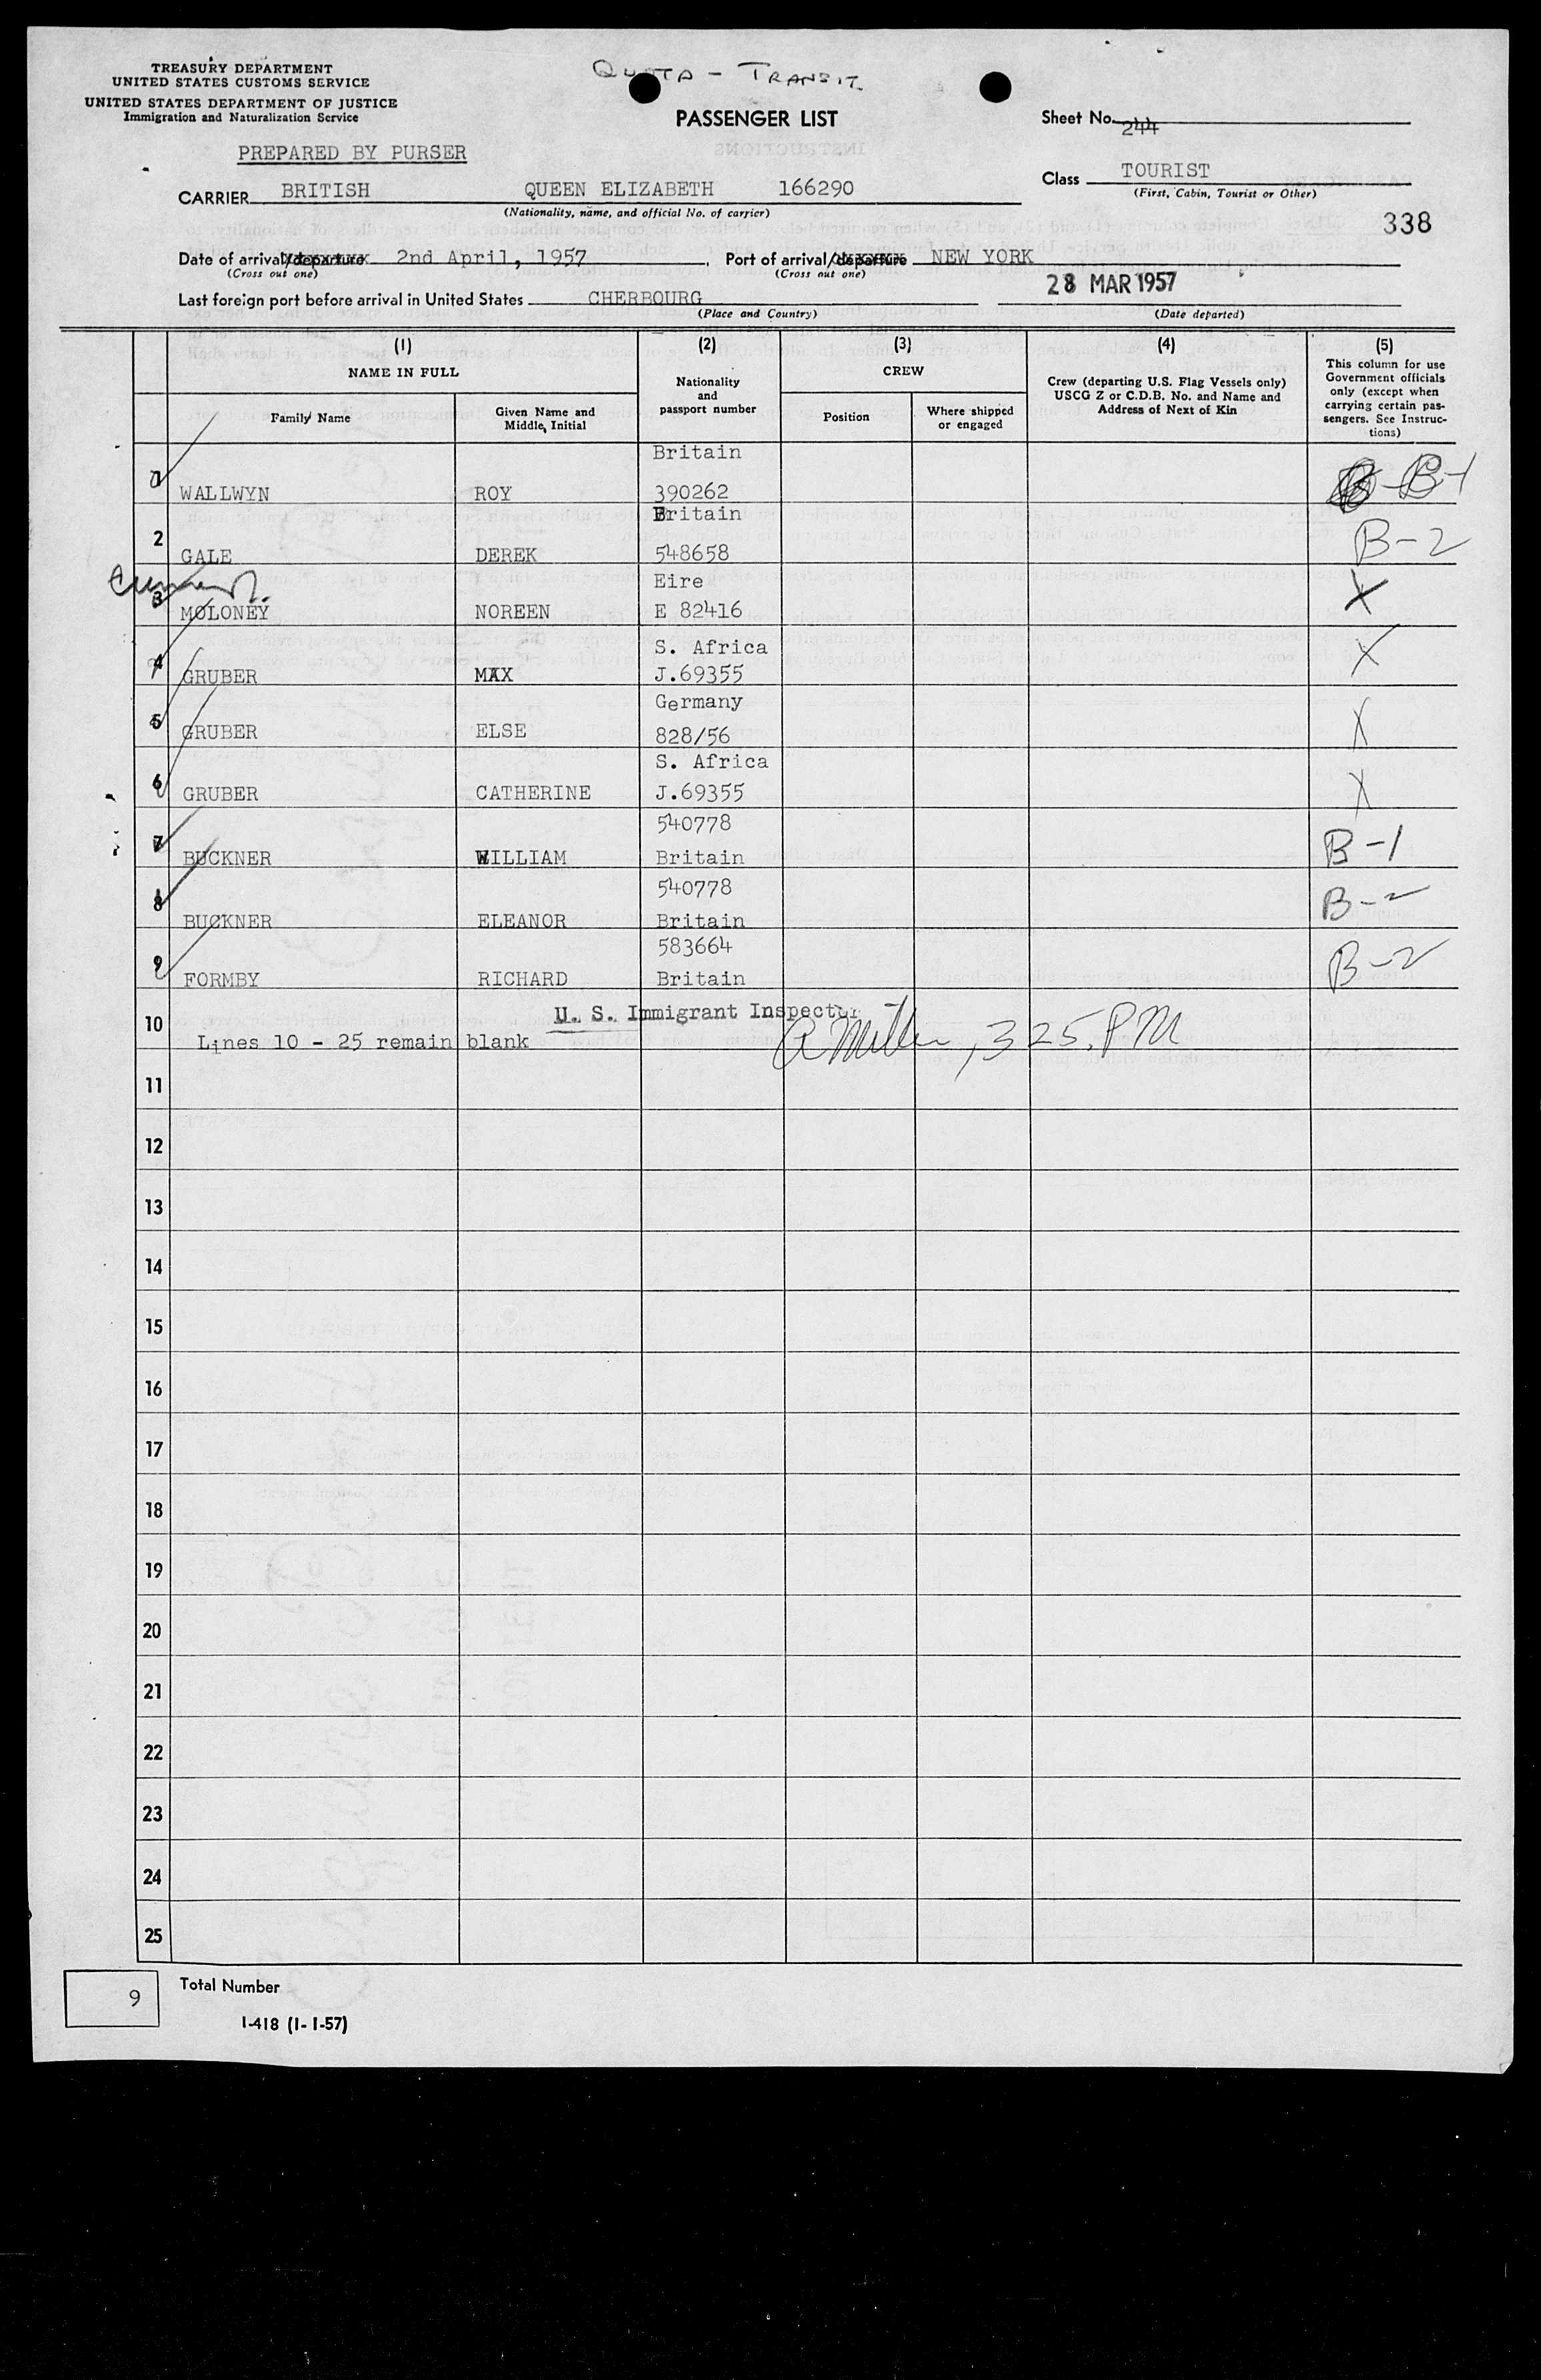 TREASURY DEPARTMENT
UNITED STATES CUSTOMS SERVICE
UNITED STATES DEPARTMENT OF JUSTICE
Immigration and Naturalization Service
QUOTA - TRANSIT
PASSENGER LIST
Sheet No. 244
PREPARED BY PURSER
Class TOURIST
(First, Cabin, Tourist or Other)
CARRIER BRITISH QUEEN ELIZABETH 166290
(Nationality, name, and official No. of carrier)
338
Date of arrival/departure 2nd April, 1957. Port of arrival/departure NEW YORK
(Cross out one) (Cross out one)
Last foreign port before arrival in United States CHERBOURG 28 MAR 1957
(Place and Country) (Date departed)
(1) NAME IN FULL
Family Name
Given Name and Middle Initial
(2) Nationality and passport number
(3) CREW
Position
Where shipped or engaged
(4) Crew (departing U.S. Flag Vessels only) USCG Z or C.D.B. No. and Name and Address of Next of Kin
(5) This column for use Government officials only (except when carrying certain passengers. See Instructions)
1 WALLWYN ROY Britain 390262 B-1
2 GALE DEREK Britain 548658 B-2
3 MOLONEY NOREEN Eire E 82416 X
4 GRUBER MAX S. Africa J.69355 X
5 GRUBER ELSE Germany 828/56 X
6 GRUBER CATHERINE S. Africa J.69355 X
7 BUCKNER WILLIAM 540778 Britain B-1
8 BUCKNER ELEANOR 540778 Britain B-2
9 FORMBY RICHARD 583664 Britain B-2
U. S. Immigrant Inspector
10 Lines 10 - 25 remain blank A Miller, 325. PM
11
12
13
14
15
16
17
18
19
20
21
22
23
24
25
9 Total Number
I-418 (1-1-57)